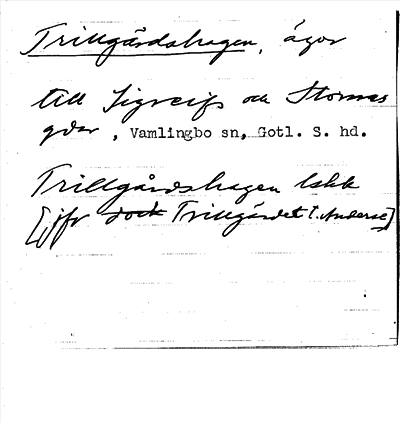 Trillgårdshagen, ägor
till Sigreifs och Stormes
gdar, Vamlingbo sn, Gotl. S. hd.
Trillgårdshagen lskk
[jfr dock Trillgärdet t. Anderse]